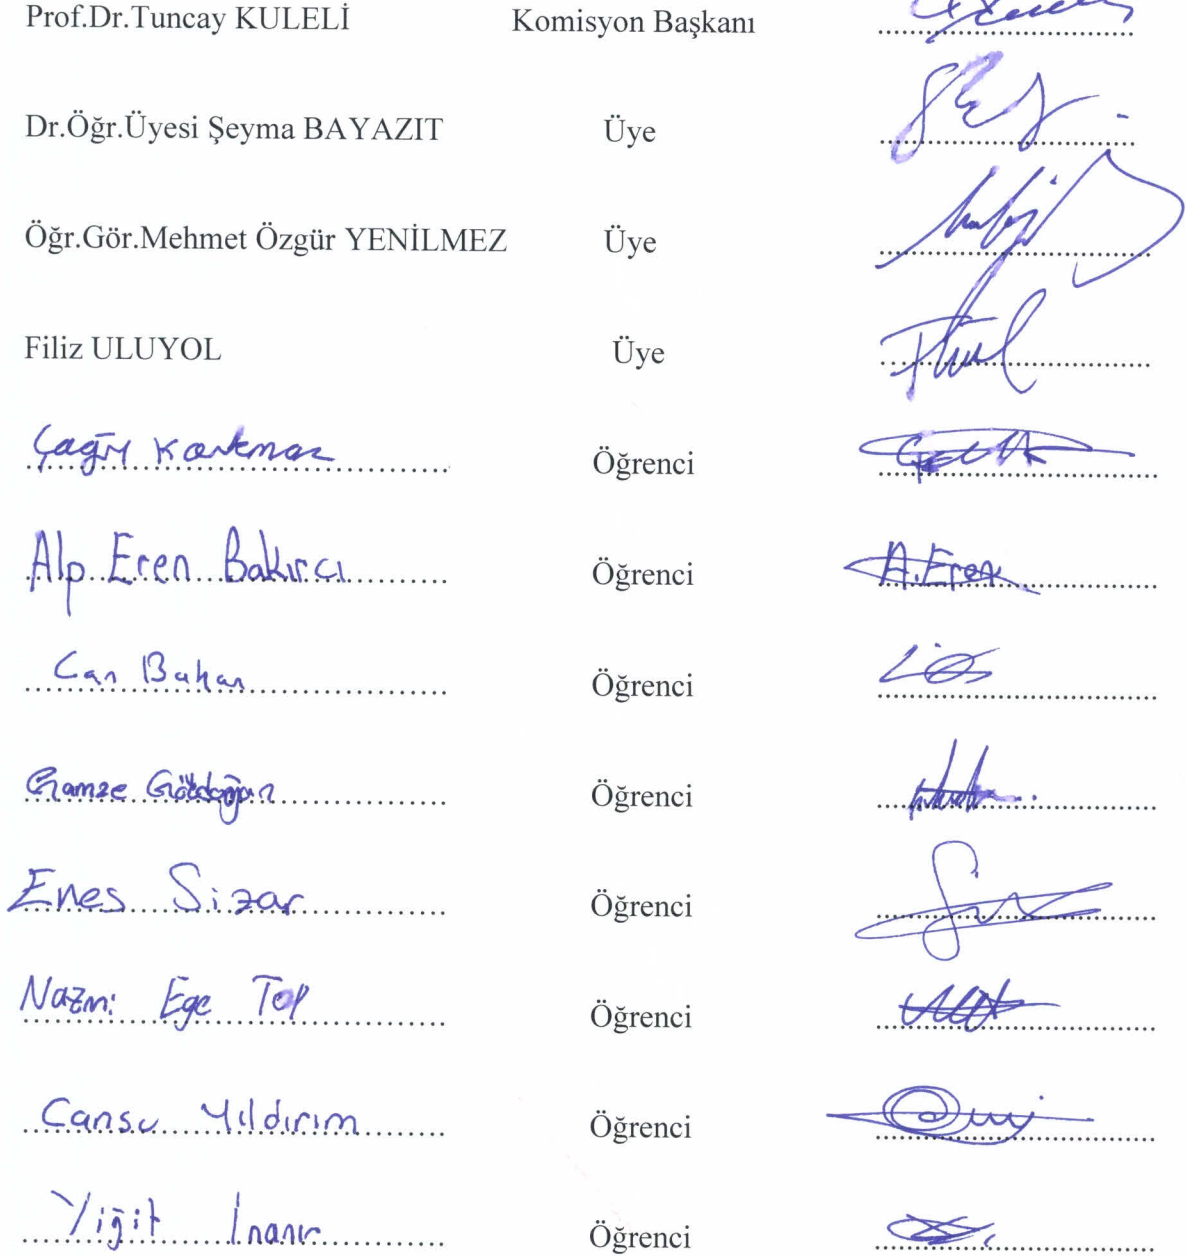 Prof.Dr.Tuncay KULELİ Komisyon Başkanı
Dr.Öğr.Üyesi Şeyma BAYAZIT Üye
Öğr.Gör.Mehmet Özgür YENİLMEZ Üye
Filiz ULUYOL Üye
Çağrı Korkmaz Öğrenci
Alp Eren Bakırcı Öğrenci A.Eren
Can Öğrenci
Gamze Gözdoğan Öğrenci
Enes Sizar Öğrenci
Nazmi Ege Top Öğrenci
Cansu Yıldırım Öğrenci
Yiğit İnanır Öğrenci